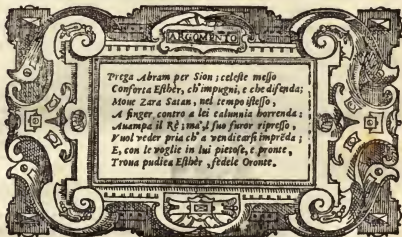 ARGOMENTO
Prega Abram per Sion; celeste messo
Conforta Esthèr, ch'impugni, e che difenda;
Moue Zara Satan, nel tempo istesso,
A finger contro a lei calunnia horrenda:
Auampa il Rè; mà, 'l suo furor ripresso,
Vuol veder pria ch'a vendicarsi imprēda;
E, con le voglie in lui pietose, e pronte,
Troua pudica Esthèr, fedele Oronte.